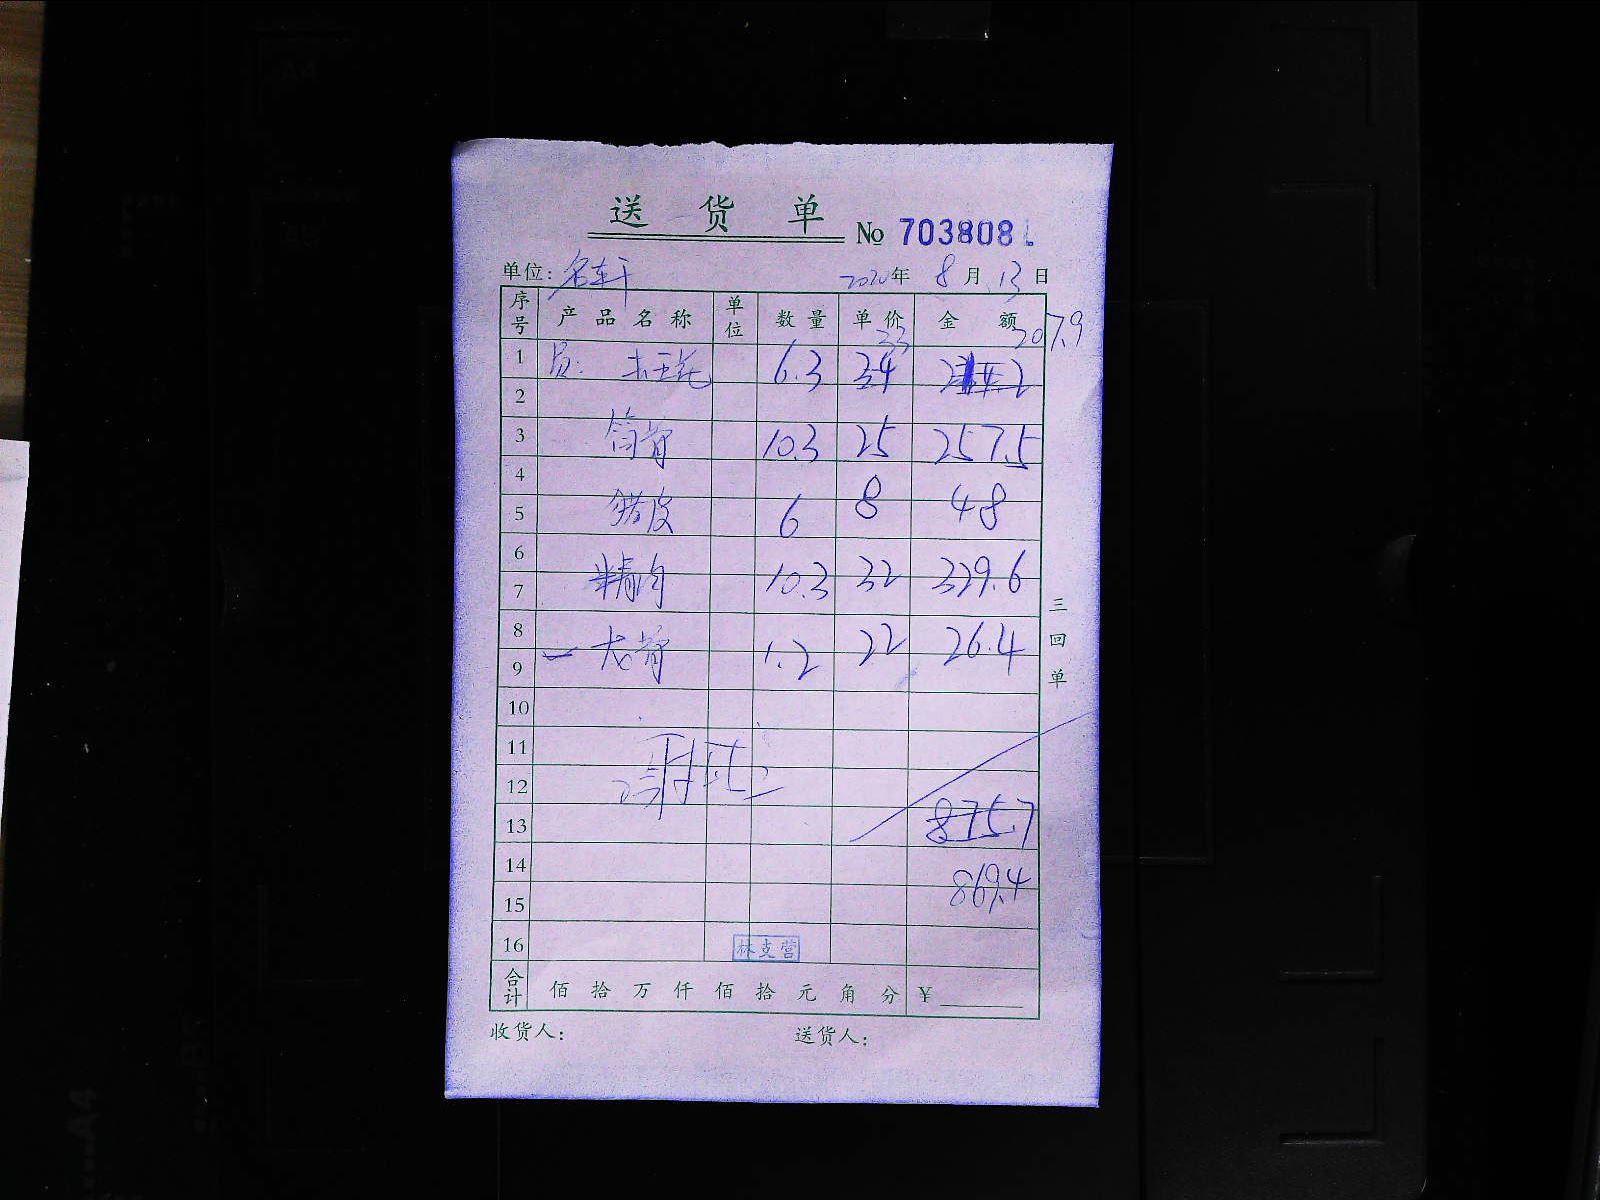 送货单
No 703808
单位: 名轩
2020年 8月 13日
序号 产品名称 单位 数量 单价 金额
33 207.9
1 员: 6.3 34
2
3 筒骨 10.3 25 257.5
4
5 猪皮 6 8 48
6
7 精肉 10.3 32 329.6
8
9 龙骨 1.2 22 26.4
10
11
12
13 875.7
14 869.4
15
16 林支营
合计 佰拾万仟佰拾元角分 ¥
三回单
收货人: 送货人: